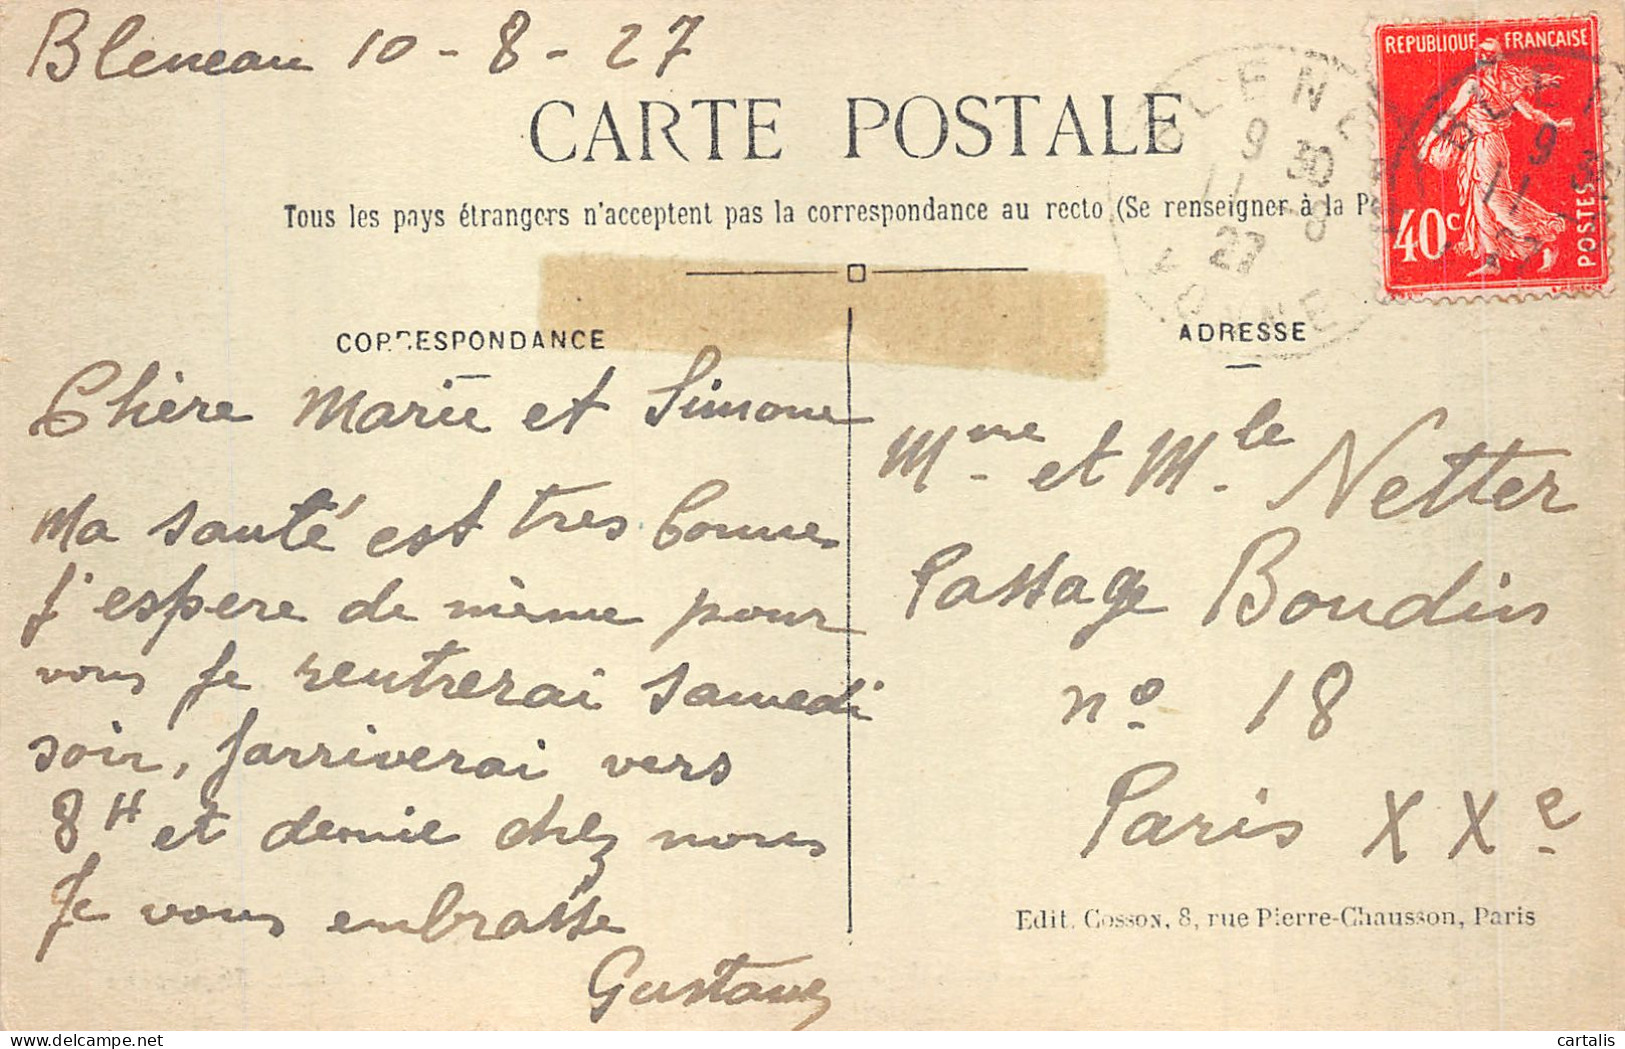 Bleneau 10-8-27
CARTE POSTALE
REPUBLIQUE FRANÇAISE
40c
POSTES
BLENEAU
9 30
11 8
27
YONNE
Tous les pays étrangers n'acceptent pas la correspondance au recto (Se renseigner à la P
CORRESPONDANCE
Chère Marie et Simone
Ma santé est tres bonne
J'espere de même pour
vous Je rentrerai samedi
soir, J'arriverai vers
8H et demie chez nous
Je vous embrasse
Gustave
ADRESSE
Mme et Mlle Netter
Passage Boudin
no 18
Paris XXe
Edit. Cosson, 8, rue Pierre-Chausson, Paris
cartalis